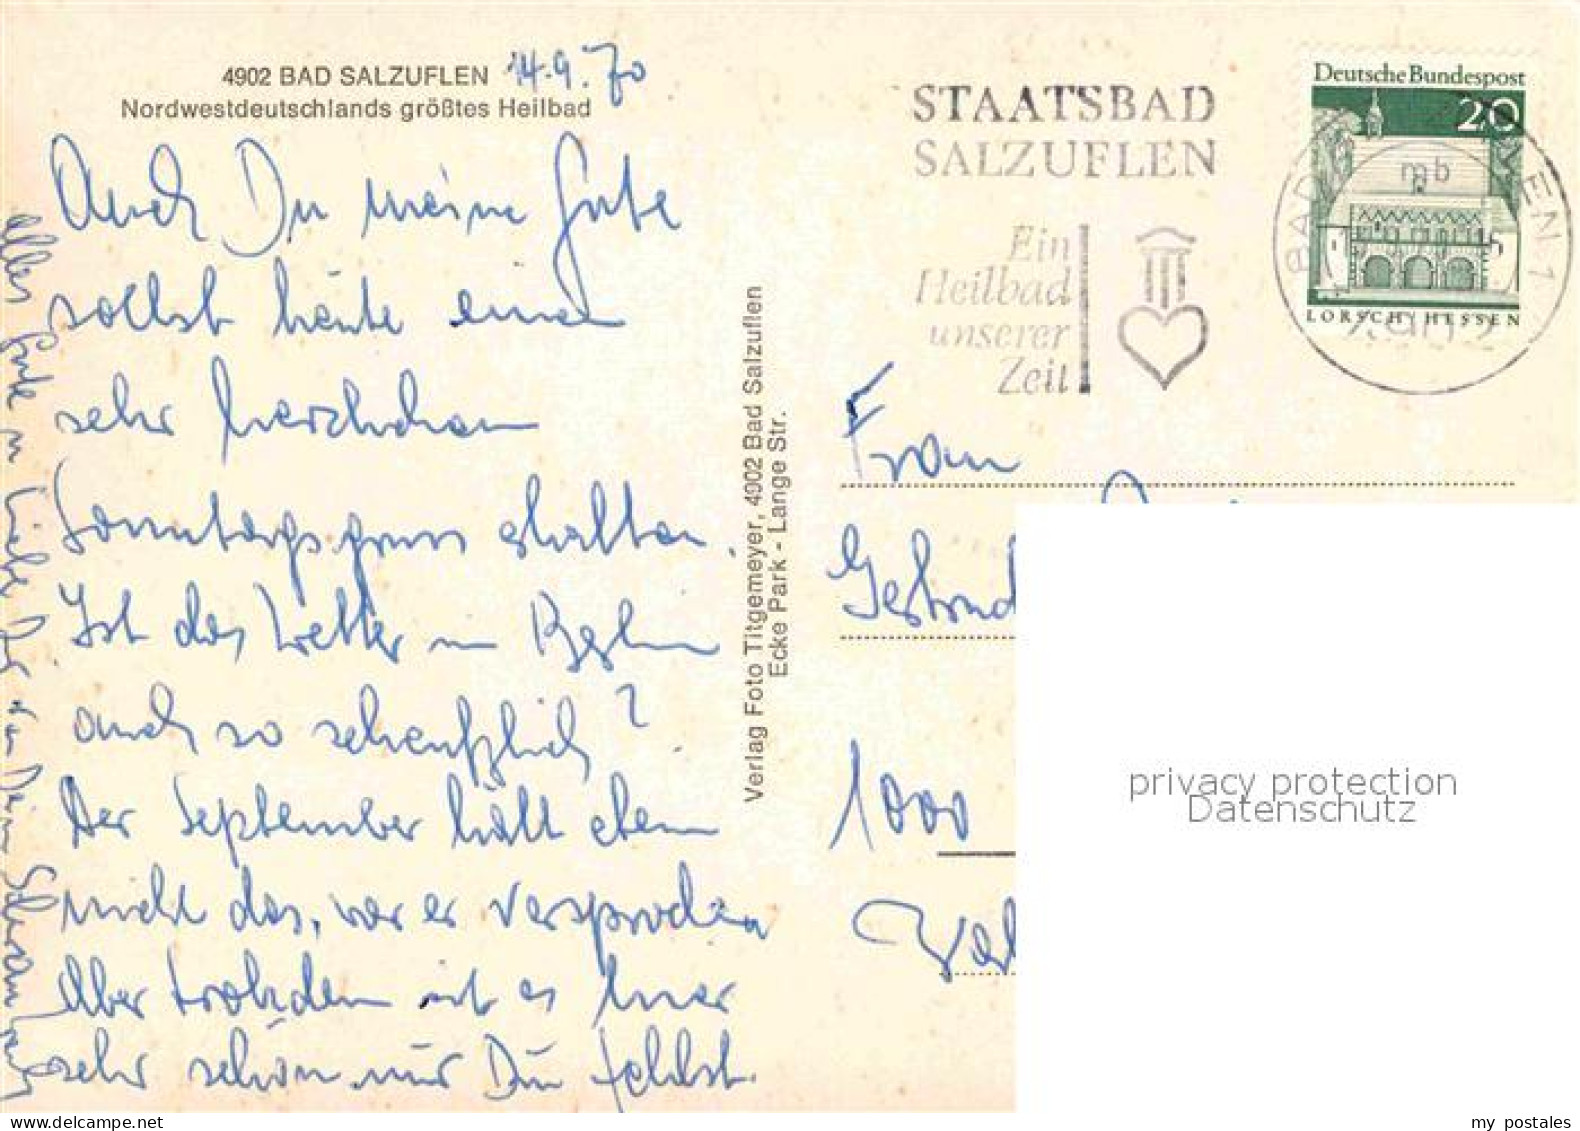 4902 BAD SALZUFLEN 14.9.70
Nordwestdeutschlands größtes Heilbad
Auch Du meine Gute
sollst heute einen
sehr herzlichen
Sonntagsgruss erhalten.
Ist das Wetter in Berlin
auch so scheußlich?
Der September hält eben
nicht das, was er versprochen
Aber trotzdem ist es hier
sehr schön nur Du fehlst.
alles Gute in Liebe Dein
Verlag Foto Titgemeyer, 4902 Bad Salzuflen
Ecke Park - Lange Str.
STAATSBAD
SALZUFLEN
Ein
Heilbad
unserer
Zeit
Deutsche Bundespost
20
mb
LORSCH / HESSEN
Frau
1000
privacy protection
Datenschutz
my postales